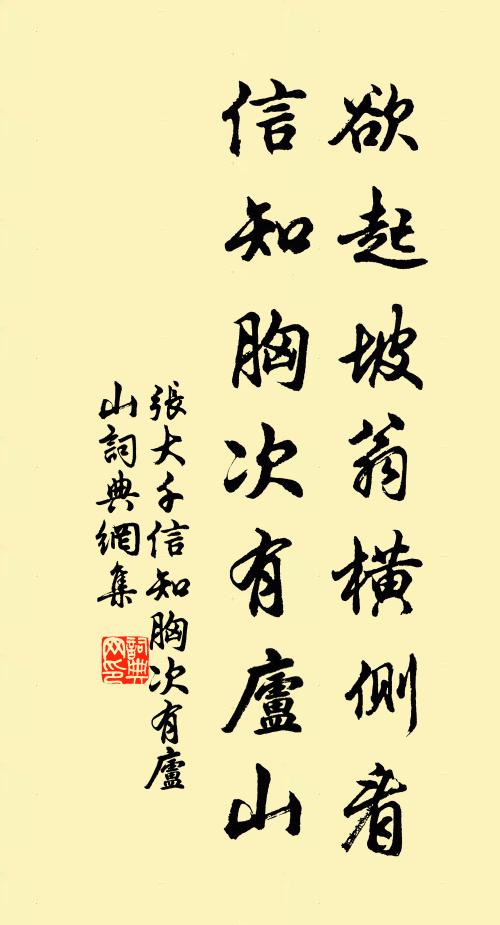 欲起坡翁橫側看
信知胸次有廬山
張大千信知胸次有廬
山詞典網集
詞典
网印